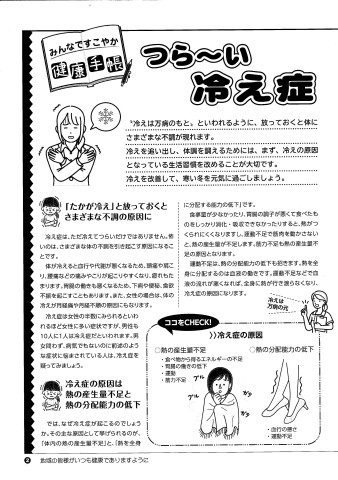 みんなですこやか
健康手帳
つら〜い
冷え症
“冷えは万病のもと。といわれるように、放っておくと体に
さまざまな不調が現れます。
冷えを追い出し、体調を調えるためには、まず、冷えの原因
となっている生活習慣を改めることが大切です。
冷えを改善して、寒い冬を元気に過ごしましょう。
「たかが冷え」と放っておくと
さまざまな不調の原因に
冷え症は、ただ冷えてつらいだけではありません。怖
いのは、さまざまな体の不調を引き起こす原因になるこ
とです。
体が冷えると血行や代謝が悪くなるため、頭痛や肩こ
り、腰痛などの痛みやこりが起こりやすくなり、疲れもた
まります。胃腸の働きも悪くなるため、下痢や便秘、食欲
不振を起こすこともあります。また、女性の場合は、体の
冷えが月経痛や月経不順の原因にもなります。
冷え症は女性の半数にみられるといわ
れるほど女性に多い症状ですが、男性も
10人に1人は冷え症だといわれます。男
女問わず、病気でもないのに前述のよう
な症状に悩まされている人は、冷え症を
疑ってみましょう。
冷え症の原因は
熱の産生量不足と
熱の分配能力の低下
では、なぜ冷え症が起こるのでしょう
か。その主な原因として挙げられるのが、
「体内の熱の産生量不足」と、「熱を全身
に分配する能力の低下」です。
食事量が少なかったり、胃腸の調子が悪くて食べたも
のをしっかり消化・吸収できなかったりすると、熱がつ
くられにくくなりますし、運動不足で筋肉を動かさない
と、熱の産生量が不足します。筋力不足も熱の産生量不
足の原因となります。
運動不足は、熱の分配能力の低下も招きます。熱を全
身に分配するのは血液の働きです。運動不足などで血
液の流れが悪くなれば、全身に熱が行き渡らなくなり、
冷え症の原因になります。
冷えは
万病の元
ココをCHECK!
冷え症の原因
○熱の産生量不足
・食べ物から得るエネルギーの不足
・胃腸の働きの低下
・運動
・筋力不足
○熱の分配能力の低下
・血行の悪さ
・運動不足
ブル
ブル
ガチ
ガチ
2 地域の皆様がいつも健康でありますように